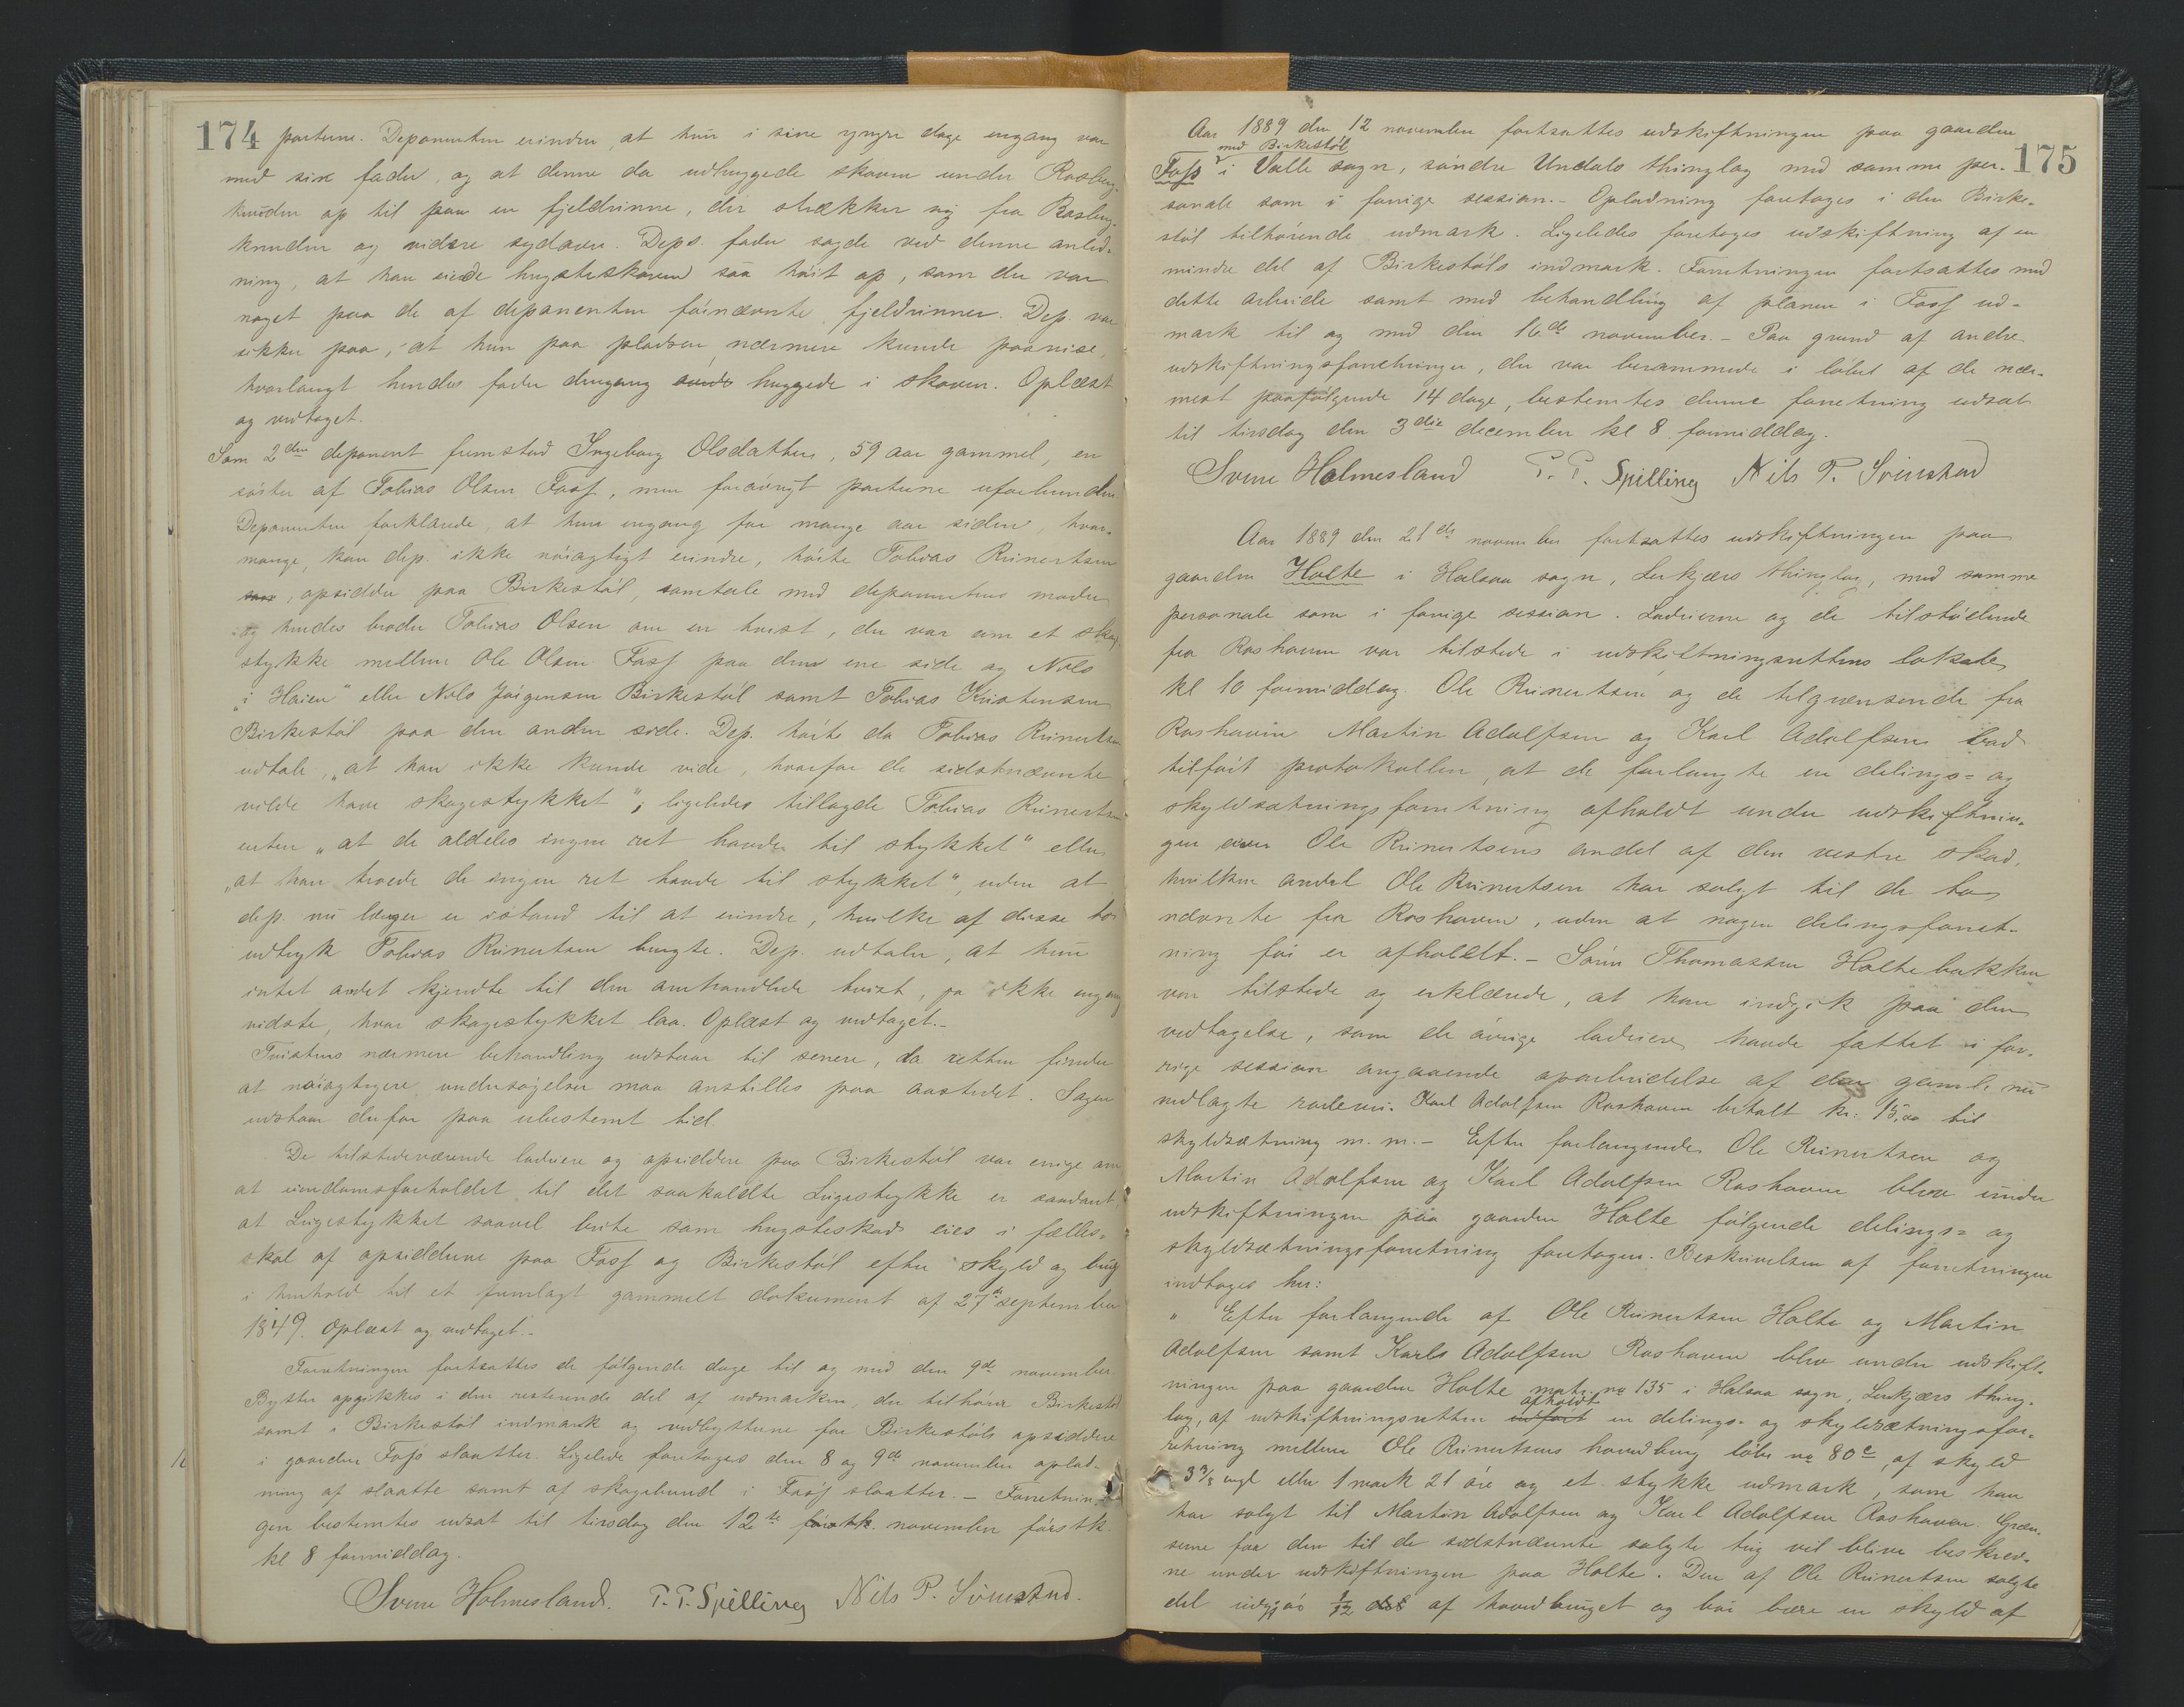 174 parterne. Deponenten erindrer, at hun i sine yngre dage engang var
med sin fader, og at denne da udhuggede skoven under Rosberg-
knuden op til paa en fjeldrinne, der strækker sig fra Rosberg-
knuden og videre sydover. Deps. fader sagde ved denne anled-
ning, at han eiede hugsterskoven saa høit op, som der var
noget paa de af deponenten førnævnte fjeldrinner. Dep. var
sikker paa, at hun paa pladsen nærmere kunde paavise,
hvorlangt hendes fader dengang huggede i skoven. Oplæst
og vedtaget.
Som 2den deponent fremstod Ingeborg Olsdatter, 59 aar gammel, en
søster af Tobias Olsen Foss, men forøvrigt parterne uforbunden.
Deponenten forklarede, at hun engang for mange aar siden, hvor-
mange, kan dep. ikke nøiagtigt erindre, hørte Tobias Reinertsen
, opsidder paa Birkestøl, samtale med deponentens moder
og hendes broder Tobias Olsen om en tvist, der var om et skog-
stykke mellem Ole Olsen Foss paa den ene side og Nils
"i Heien" eller Nils Jørgensen Birkestøl samt Tobias Kristensen
Birkestøl paa den anden side. Dep. hørte da Tobias Reinertsen
udtale, "at han ikke kunde vide, hvorfor de sidstnævnte
vilde have skogestykket"; ligeledes tillagde Tobias Reinertsen
enten "at de aldeles ingen ret havde til stykket" eller
"at han troede de ingen ret havde til stykket", uden at
dep. nu længer er istand til at erindre, hvilke af disse to
udtryk Tobias Reinertsen brugte. Dep. udtaler, at hun
intet andet kjendte til den omhandlede tvist, ja ikke engang
vidste, hvor skogestykket laa. Oplæst og vedtaget.-
Tvistens nærmere behandling udstaar til senere, da retten finder
at nøiagtigere undersøgelser maa anstilles paa aastedet. Sagen
udstaar derfor paa ubestemt tid.
De tilstedeværende lodeiere og opsiddere paa Birkestøl var enige om
at eiendomsforholdet til det saakaldte Leigestykke er saadant,
at Leigestykket saavel beite som hugsterskov eies i fælles-
skab af opsidderne paa Foss og Birkestøl efter skyld og brug
i henhold til et fremlagt gammelt dokument af 27de september
1849. Oplæst og vedtaget.-
Forretningen fortsattes de følgende dage til og med den 9de november
Bytter opgikkes i den resterende del af udmarken, der tilhører Birkestøl
samt i Birkestøl indmark og vedbytterne for Birkestøls opsiddere
i gaarden Foss slaatter. Ligeledes foretoges den 8 og 9de november oplod-
ning af slaatte samt af skogebund i Foss slaatter. - Forretnin-
gen bestemtes udsat til tirsdag den 12te november førstk.
kl 8 formiddag.
Svenn Holmesland. T. T. Spilling Nils P. Svinestad.
Aar 1889 den 12 november fortsattes udskiftningen paa gaarden
med Birkestøl
Foss i Valle sogn, søndre Undals thinglag med samme per- 175
sonale som i forrige session.- Oplodning foretoges i den Birke-
støl tilhørende udmark. Ligeledes foretoges udskiftning af en
mindre del af Birkestøls indmark. Forretningen fortsattes med
dette arbeide samt med behandling af planen i Foss ud-
mark til og med den 16de november.- Paa grund af andre
udskiftningsforretninger, der var berammede i løbet af de nær-
mest paafølgende 14 dage, bestemtes denne forretning udsat
til tirsdag den 3die december kl 8 formiddag.
Svenn Holmesland T. T. Spilling Nils P. Svinestad
Aar 1889 den 21de november fortsattes udskiftningen paa
gaarden Holte i Halsaa sogn, Lerkjærs thinglag, med samme
personale som i forrige session. Lodeierne og de tilstødende
fra Roshaven var tilstede i udskiftningsrettens lokale
kl 10 formiddag. Ole Reinertsen og de tilgrænsende fra
Roshaven Martin Adolfsen og Karl Adolfsen bad
tilført protokollen, at de forlangte en delings= og
skyldsætningsforretning afholdt under udskiftnin-
gen over Ole Reinertsens andel af den vestre skov,
hvilken andel Ole Reinertsen har solgt til de to
nævnte fra Roshaven, uden at nogen delingsforret-
ning før er afholdt.- Søren Thomassen Holtebakken
var tilstede og erklærede, at han indgik paa den
vedtagelse, som de øvrige lodeiere havde fattet i for-
rige session angaaende oparbeidelse af den gamle nu
nedlagte rodevei. Karl Adolfsen Roshaven betalt kr: 15,00 til
skyldsætning m.m.- Efter forlangende Ole Reinertsen og
Martin Adolfsen og Karl Adolfsen Roshaven blev under
udskiftningen paa gaarden Holte følgende delings= og
skyldsætningsforretning foretagen. Beskrivelsen af forretningen
indtages her:
" Efter forlangende af Ole Reinertsen Holte og Martin
Adolfsen samt Karl Adolfsen Roshaven blev under udskift-
ningen paa gaarden Holte matr. no 135 i Halsaa sogn, Lerkjærs thing-
afholdt
lag, af udskiftningsretten indført en delings- og skyldsætningsfor-
retning mellem Ole Reinertsens hovedbrug løbe no 80c, af skyld
3 3/8 engl eller 1 mark 21 øre og et stykke udmark, som han
har solgt til Martin Adolfsen og Karl Adolfsen Roshaven. Græn-
serne for den til de sidstnævnte solgte teig vil blive beskrev-
ne under udskiftningen paa Holte. Den af Ole Reinertsen solgte
del udgjør 1/12 del af hovedbruget og bør bære en skyld af